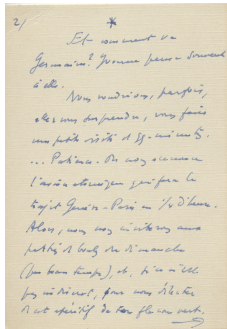 2/
Et comment va
Germaine? Yvonne pense souvent
à elle.
Nous voudrions, parfois,
vous surprendre, vous faire
une petite visite de
... Patience. On nous annonce
l'avion atomique qui fera le
trajet - Paris en 1/2 heure.
Alors, nous nous inviterons aux
du dimanche
(par beau temps), et, si ce n'est
pas indiscret, pour nous délecter
d'un apéritif de